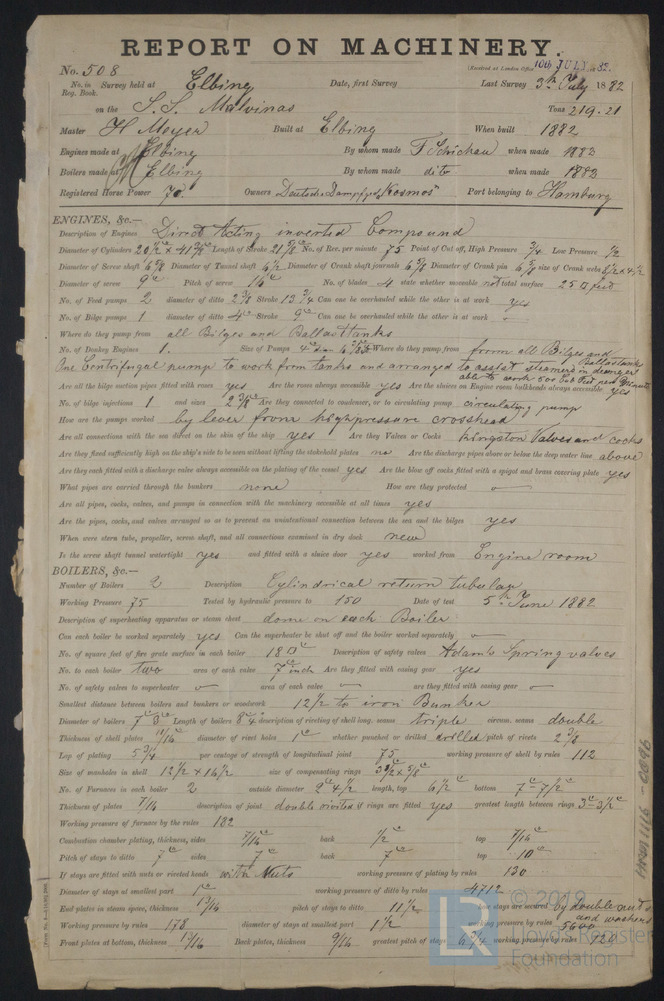 REPORT ON MACHINERY.
No. 508 (Received at London Office 10th JULY 82.
No. in Reg. Book. Survey held at Elbing Date, first Survey Last Survey 3th July 1882
on the S.S. Malvinas Tons 219.21
Master H Meyer Built at Elbing When built 1882
Engines made at Elbing By whom made F Schichau when made 1882
Boilers made at Elbing By whom made dito when made 1882
Registered Horse Power 70. Owners "Kosmos" Port belonging to Hamburg
ENGINES, &c.—
Description of Engines Direct Acting inverted Compound
Diameter of Cylinders Length of Stroke 21 5/8 No. of Rev. per minute 75 Point of Cut off, High Pressure 3/4 Low Pressure 1/2
Diameter of Screw shaft 6 5/8 Diameter of Tunnel shaft 6 1/2 Diameter of Crank shaft journals 6 5/8 Diameter of Crank pin 6 5/8 size of Crank webs
Diameter of screw 9 Pitch of screw No. of blades 4 state whether moveable not total surface 25 □ feet
No. of Feed pumps 2 diameter of ditto 2 3/8 Stroke 12 3/4 Can one be overhauled while the other is at work yes
No. of Bilge pumps 1 diameter of ditto 4 Stroke 9 Can one be overhauled while the other is at work
Where do they pump from all Bilges and Ballasttanks
No. of Donkey Engines 1. Size of Pumps Where do they pump from from all Bilges and Ballasttanks
One Centrifugal pump to work from tanks and arranged to assist steamers in danger
able to work 500 Cub Feet per Minute
Are all the bilge suction pipes fitted with roses yes Are the roses always accessible yes Are the sluices on Engine room bulkheads always accessible yes
No. of bilge injections 1 and sizes 2 3/8 Are they connected to condenser, or to circulating pump circulating pump
How are the pumps worked by lever from highpressure crosshead
Are all connections with the sea direct on the skin of the ship yes Are they Valves or Cocks Kingston Valves and cocks
Are they fixed sufficiently high on the ship's side to be seen without lifting the stokehold plates no Are the discharge pipes above or below the deep water line above
Are they each fitted with a discharge valve always accessible on the plating of the vessel yes Are the blow off cocks fitted with a spigot and brass covering plate yes
What pipes are carried through the bunkers none How are they protected
Are all pipes, cocks, valves, and pumps in connection with the machinery accessible at all times yes
Are the pipes, cocks, and valves arranged so as to prevent an unintentional connection between the sea and the bilges yes
When were stern tube, propeller, screw shaft, and all connections examined in dry dock new
Is the screw shaft tunnel watertight yes and fitted with a sluice door yes worked from Engine room
BOILERS, &c.—
Number of Boilers 2 Description Cylindrical return tubular
Working Pressure 75 Tested by hydraulic pressure to 150 Date of test 5th June 1882
Description of superheating apparatus or steam chest dome on each Boiler
Can each boiler be worked separately yes Can the superheater be shut off and the boiler worked separately
No. of square feet of fire grate surface in each boiler 18 □ Description of safety valves Adams Spring valves
No. to each boiler two area of each valve 7 inch Are they fitted with easing gear yes
No. of safety valves to superheater area of each valve are they fitted with easing gear
Smallest distance between boilers and bunkers or woodwork 12 1/2 to iron Bunker
Diameter of boilers Length of boilers description of riveting of shell long. seams triple circum. seams double
Thickness of shell plates 11/16 diameter of rivet holes 1 whether punched or drilled drilled pitch of rivets 2 3/8
Lap of plating 5 3/4 per centage of strength of longitudinal joint 75 working pressure of shell by rules 112
Size of manholes in shell 12 1/2 x 16 1/2 size of compensating rings
No. of Furnaces in each boiler 2 outside diameter 2 4 1/2 length, top 6 1/2 bottom 7 7 1/2
Thickness of plates 7/16 description of joint double rivited if rings are fitted yes greatest length between rings 3 3 1/2
Working pressure of furnace by the rules 182
Combustion chamber plating, thickness, sides 7/16 back 1/2 top 7/16
Pitch of stays to ditto 7 sides 7 back 7 top 10
If stays are fitted with nuts or riveted heads with Nuts working pressure of plating by rules 130
Diameter of stays at smallest part 1 working pressure of ditto by rules 4712
End plates in steam space, thickness 13/16 pitch of stays to ditto 11 1/2 how stays are secured by double nuts and washers
Working pressure by rules 178 diameter of stays at smallest part 1 1/2 working pressure by rules 5600
Front plates at bottom, thickness 13/16 Back plates, thickness 9/16 greatest pitch of stays 6 3/4 working pressure by rules 120
HRM 1116-0096
LR © 2019
Lloyd's Register
Foundation